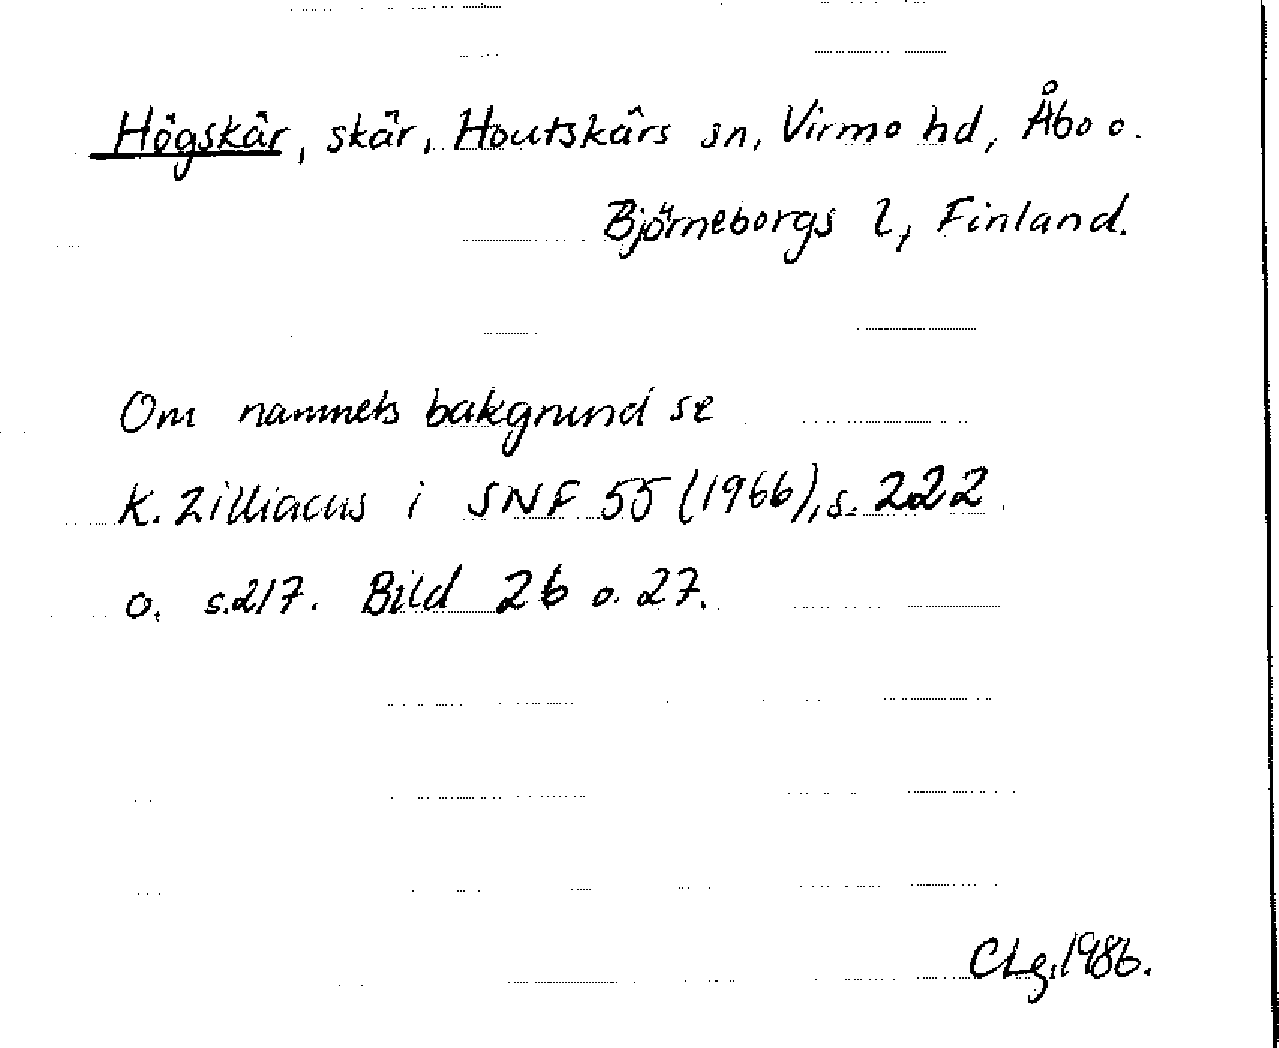 Högskär, skär, Houtskärs sn, Virmo hd, Åbo o.
Björneborgs l, Finland.
Om namnets bakgrund se
K. Zilliacus i SNF 55 (1966), s. 222
o. s. 217. Bild 26 o. 27.
CLg, 1986.